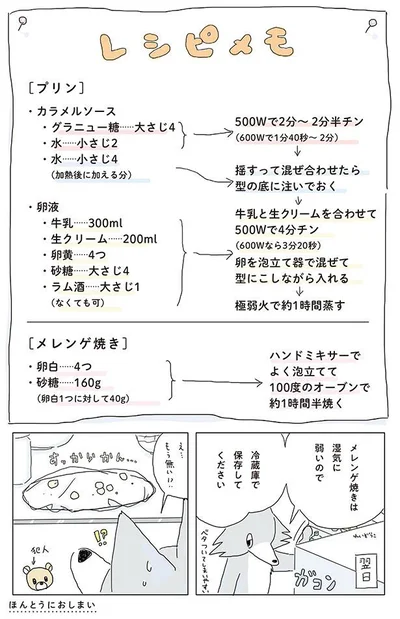 レシピメモ
[プリン]
・カラメルソース
・グラニュー糖……大さじ4
・水……小さじ2
・水……小さじ4
(加熱後に加える分)
500Wで2分〜2分半チン
(600Wで1分40秒〜2分)
揺すって混ぜ合わせたら
型の底に注いでおく
・卵液
・牛乳……300ml
・生クリーム……200ml
・卵黄……4つ
・砂糖……大さじ4
・ラム酒……大さじ1
(なくても可)
牛乳と生クリームを合わせて
500Wで4分チン
(600Wなら3分20秒)
卵を泡立て器で混ぜて
型にこしながら入れる
極弱火で約1時間蒸す
[メレンゲ焼き]
・卵白……4つ
・砂糖……160g
(卵白1つに対して40g)
ハンドミキサーで
よく泡立てて
100度のオーブンで
約1時間半焼く
翌日
メレンゲ焼きは
湿気に
弱いので
冷蔵庫で
保存して
ください
れいぞうこ
ガコン
ベタついてしまいやすい
え…
もう無い!?
すっからかん…
!?
犯人
ほんとうにおしまい